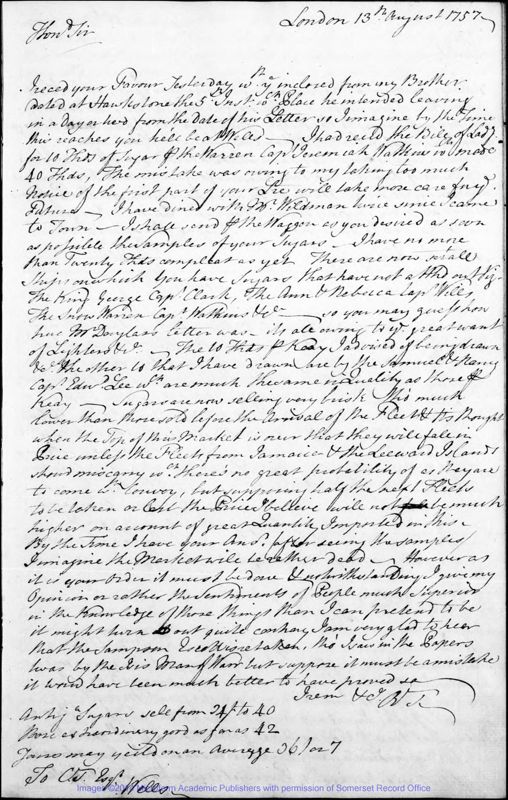 London 13th August 1757
Hond Sir
I reced your Favour Yesterday wth ye inclosed from my Brother
dated at Hawkstone the 5th Inst. wch Place he intended leaving
in a day or two from the date of his Letter so I imagine by the Time
this reaches you hell be at Wells — I had rec'd the Bill of Lad:g
for 10 Hhds of Sugar the Warren Capt Jeremiah Watkins
40 Hhds, The mistake was owing to my taking too much
Notice of the first part of your will take more care for ye
Future — I have dined with Mr Wildman twice since I came
to Town — I shall send the Waggon as you desired as soon
as possible the Samples of your Sugars — I have no more
than Twenty Hhds compleat as yet There are now several
Ships on which you have Sugars that have not a Hhd out Viz
The King George Capt Clark, The Ann & Rebecca Capt Wills
The Snow Warren Capt Watkins &c — so you may guess how
true Mr Douglass letter was — its all owing to ye great want
of Lighters &c — The 10 Hhds I advised of being drawn
&c The other 10 that I have drawn are by the Samuel & Henry
Capt Edwd Lee wch are much the same in Quality as those
— Sugars are now selling very brisk tho' much
lower than those sold before the Arrival of the Fleet & tis thought
when the Top of this Market is over that they will fall in
Price unless the Fleets from Jamaica & the Leeward Islands
shoud miscarry wch there's no great probability of as they are
to come wth Convoy, but supposing half the next Fleets
to be taken or lost the Prices I believe will not be much
higher on account of great Quantity Imported in this —
By the Time I have your Ansr after seeing the samples
I imagine the Market will be rather dead — However as
it is your Order it must be done & notwithstanding I give my
Opinion or rather the Sentiments of People much Superior
in the Knowledge of those things than I can pretend to be
it might turn out quite contrary I am very glad to hear
that the Sampson is retaken, tho' I saw in the Papers
twas by the Man of Warr but suppose it must be a mistake
it would have been much better to have proved so
I rem &c
Antig:a Sugars sell from 24/ to 40
extraordinary good as far as 42
Yours may yeild on an Average 36/ or 7
To Esqr
Wells
Images ©2009 Academic Publishers with permission of Somerset Record Office